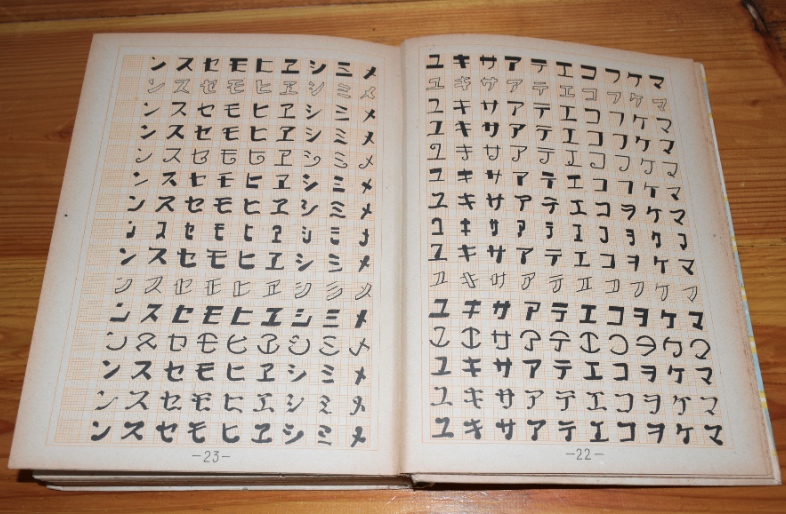 マケフコエテアサキユ
マケフコエテアサキユ
マケフコエテアサキユ
マケフコエテアサキユ
マケフコエテアサキユ
マケフコエテアサキユ
マケヲコエテアサキユ
マケヲコエテアサキユ
マケヲコエテアサキユ
マケフコエテアサキユ
マケヲコエテアサキユ
マケヲコエテアサキユ
マケヲコエテアサキユ
マケヲコエテアサキユ
マケヲコエテアサキユ
-22-
メミシヱヒモセスン
メミシヱヒモセスン
メミシヱヒモセスン
メミシヱヒモセスン
メミシヱヒモセスン
メミシヱヒモセスン
メミシヱヒモセスン
メミシヱヒモセスン
メミシヱヒモセスン
メミシヱヒモセスン
メミシヱヒモセスン
メミシヱヒモセスン
メミシヱヒモセスン
メミシヱヒモセスン
メミシヱヒモセスン
-23-